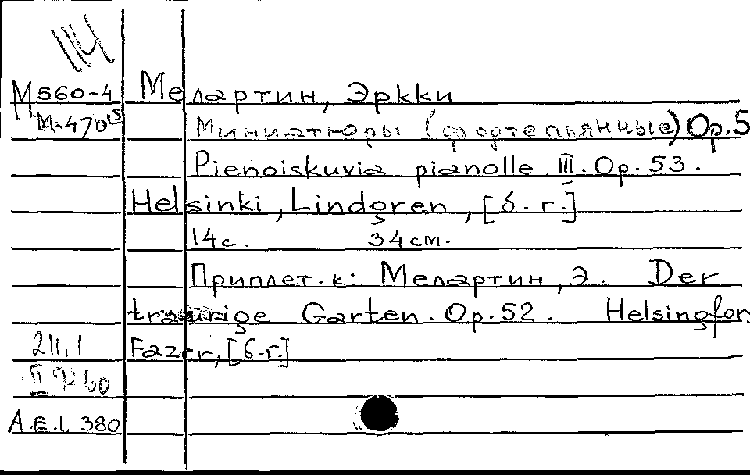 М560-4 Мелартин, Эркки
М-470 Миниатюры (фортепьянные) Op.5
Pienoiskuvia pianolle III. Op. 53.
Helsinki, Lindgren, [б. г.]
14с. 34см.
Приплет. к: Мелартин, Э. Der
traurige Garten. Op. 52. Helsingfor
211.1 Fazer, [б.г.]
A.E.L 380